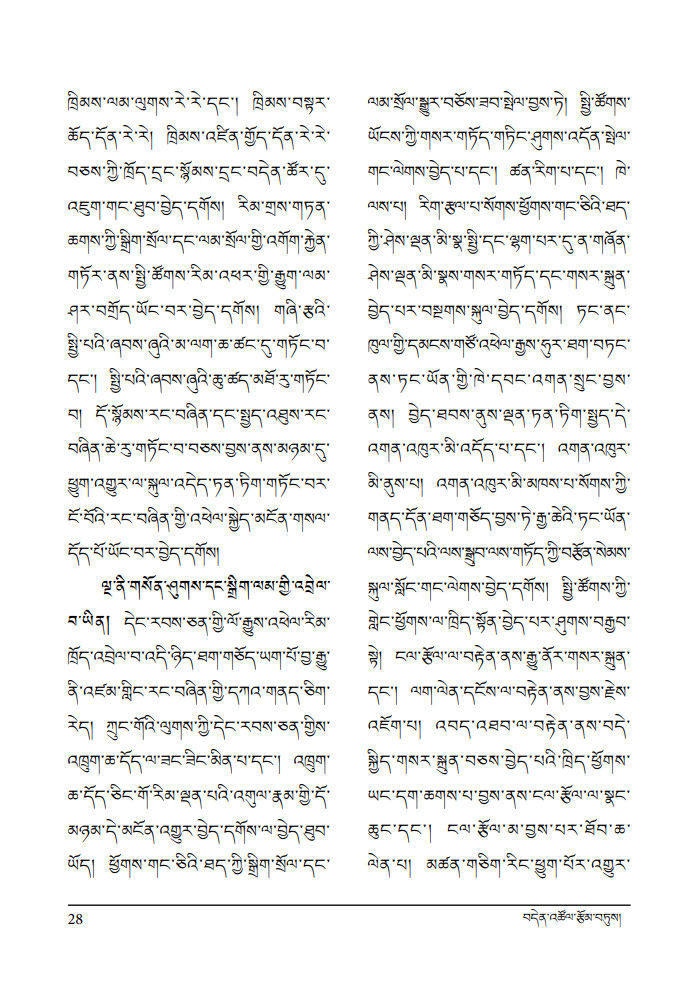 ཁྲིམས་ལམ་ལུགས་རེ་རེ་དང་། ཁྲིམས་བསྟར་
ཚོད་དོན་རེ་རེ། ཁྲིམས་འཛིན་གྱོད་དོན་རེ་རེ་
བཅས་ཀྱི་ཁྲོད་དྲང་སྙོམས་དྲང་བདེན་ཚོར་དུ་
འཇུག་གང་ཐུབ་བྱེད་དགོས། རིམ་གྲས་གཏན་
ཆགས་ཀྱི་སྒྲིག་སྲོལ་དང་ལམ་སྲོལ་གྱི་འགོག་རྐྱེན་
གཏོར་ནས་སྤྱི་ཚོགས་རིམ་འཕར་གྱི་རྒྱུག་ལམ་
ཤར་བགྲོད་ཡོང་བར་བྱེད་དགོས། གཞི་རྩའི་
སྤྱི་པའི་ཞབས་ཞུའི་མ་ལག་ཆ་ཚང་དུ་གཏོང་བ་
དང་། སྤྱི་པའི་ཞབས་ཞུའི་ཆུ་ཚད་མཐོ་རུ་གཏོང་
བ། དོ་སྙོམས་རང་བཞིན་དང་སྤྱད་འཐུས་རང་
བཞིན་ཆེ་རུ་གཏོང་བ་བཅས་བྱས་ནས་མཉམ་དུ་
ཕྱུག་འགྱུར་ལ་སྐུལ་འདེད་ཏན་ཏིག་གཏོང་བར་
ངོ་བོའི་རང་བཞིན་གྱི་འཕེལ་སྐྱེད་མངོན་གསལ་
དོད་པོ་ཡོང་བར་བྱེད་དགོས།
ལྔ་ནི་གསོན་ཤུགས་དང་སྒྲིག་ལམ་གྱི་འབྲེལ་
བ་ཡིན། དེང་རབས་ཅན་གྱི་ལོ་རྒྱུས་འཕེལ་རིམ་
ཁྲོད་འབྲེལ་བ་འདི་ཉིད་ཐག་གཅོད་ཡག་པོ་བྱ་རྒྱུ་
ནི་འཛམ་གླིང་རང་བཞིན་གྱི་དཀའ་གནད་ཅིག་
རེད། ཀྲུང་གོའི་ལུགས་ཀྱི་དེང་རབས་ཅན་གྱིས་
འཁྲུག་ཆ་དོད་ལ་ཟང་ཟིང་མིན་པ་དང་། འཁྲུག་
ཆ་དོད་ཅིང་གོ་རིམ་ལྡན་པའི་འགུལ་རྣམ་གྱི་དོ་
མཉམ་དེ་མངོན་འགྱུར་བྱེད་དགོས་ལ་བྱེད་ཐུབ་
ཡོད། ཕྱོགས་གང་ཅིའི་ཐད་ཀྱི་སྒྲིག་སྲོལ་དང་
ལམ་སྲོལ་སྒྱུར་བཅོས་ཟབ་སྤེལ་བྱས་ཏེ། སྤྱི་ཚོགས་
ཡོངས་ཀྱི་གསར་གཏོད་གཏིང་ཤུགས་འདོན་སྤེལ་
གང་ལེགས་བྱེད་པ་དང་། ཚན་རིག་པ་དང་། ཁེ་
ལས་པ། རིག་རྩལ་པ་སོགས་ཕྱོགས་གང་ཅིའི་ཐད་
ཀྱི་ཤེས་ལྡན་མི་སྣ་སྤྱི་དང་ལྷག་པར་དུ་ན་གཞོན་
ཤེས་ལྡན་མི་སྣས་གསར་གཏོད་དང་གསར་སྐྲུན་
བྱེད་པར་བསྔགས་སྐུལ་བྱེད་དགོས། ཏང་ནང་
ཁུལ་གྱི་དམངས་གཙོ་འཕེལ་རྒྱས་ཧུར་ཐག་བཏང་
ནས་ཏང་ཡོན་གྱི་ཁེ་དབང་འགན་སྲུང་བྱས་
ནས། བྱེད་ཐབས་ནུས་ལྡན་ཏན་ཏིག་སྤྱད་དེ་
འགན་འཁུར་མི་འདོད་པ་དང་། འགན་འཁུར་
མི་ནུས་པ། འགན་འཁུར་མི་མཁས་པ་སོགས་ཀྱི་
གནད་དོན་ཐག་གཅོད་བྱས་ཏེ་རྒྱ་ཆེའི་ཏང་ཡོན་
ལས་བྱེད་པའི་ལས་སྒྲུབ་ལས་གཏོད་ཀྱི་བརྩོན་སེམས་
སྐུལ་སློང་གང་ལེགས་བྱེད་དགོས། སྤྱི་ཚོགས་ཀྱི་
གླེང་ཕྱོགས་ལ་ཁྲིད་སྟོན་བྱེད་པར་ཤུགས་བརྒྱབ་
སྟེ། ངལ་རྩོལ་ལ་བརྟེན་ནས་རྒྱུ་ནོར་གསར་སྐྲུན་
དང་། ལག་ལེན་དངོས་ལ་བརྟེན་ནས་བྱས་རྗེས་
འཇོག་པ། འབད་འཐབ་ལ་བརྟེན་ནས་བདེ་
སྐྱིད་གསར་སྐྲུན་བཅས་བྱེད་པའི་ཁྲིད་ཕྱོགས་
ཡང་དག་ཆགས་པ་བྱས་ནས་ངལ་རྩོལ་ལ་སྣང་
ཆུང་དང་། ངལ་རྩོལ་མ་བྱས་པར་ཐོབ་ཆ་
ལེན་པ། མཚན་གཅིག་རིང་ཕྱུག་པོར་འགྱུར་
28
བདེན་འཚོལ་རྩོམ་བཏུས།